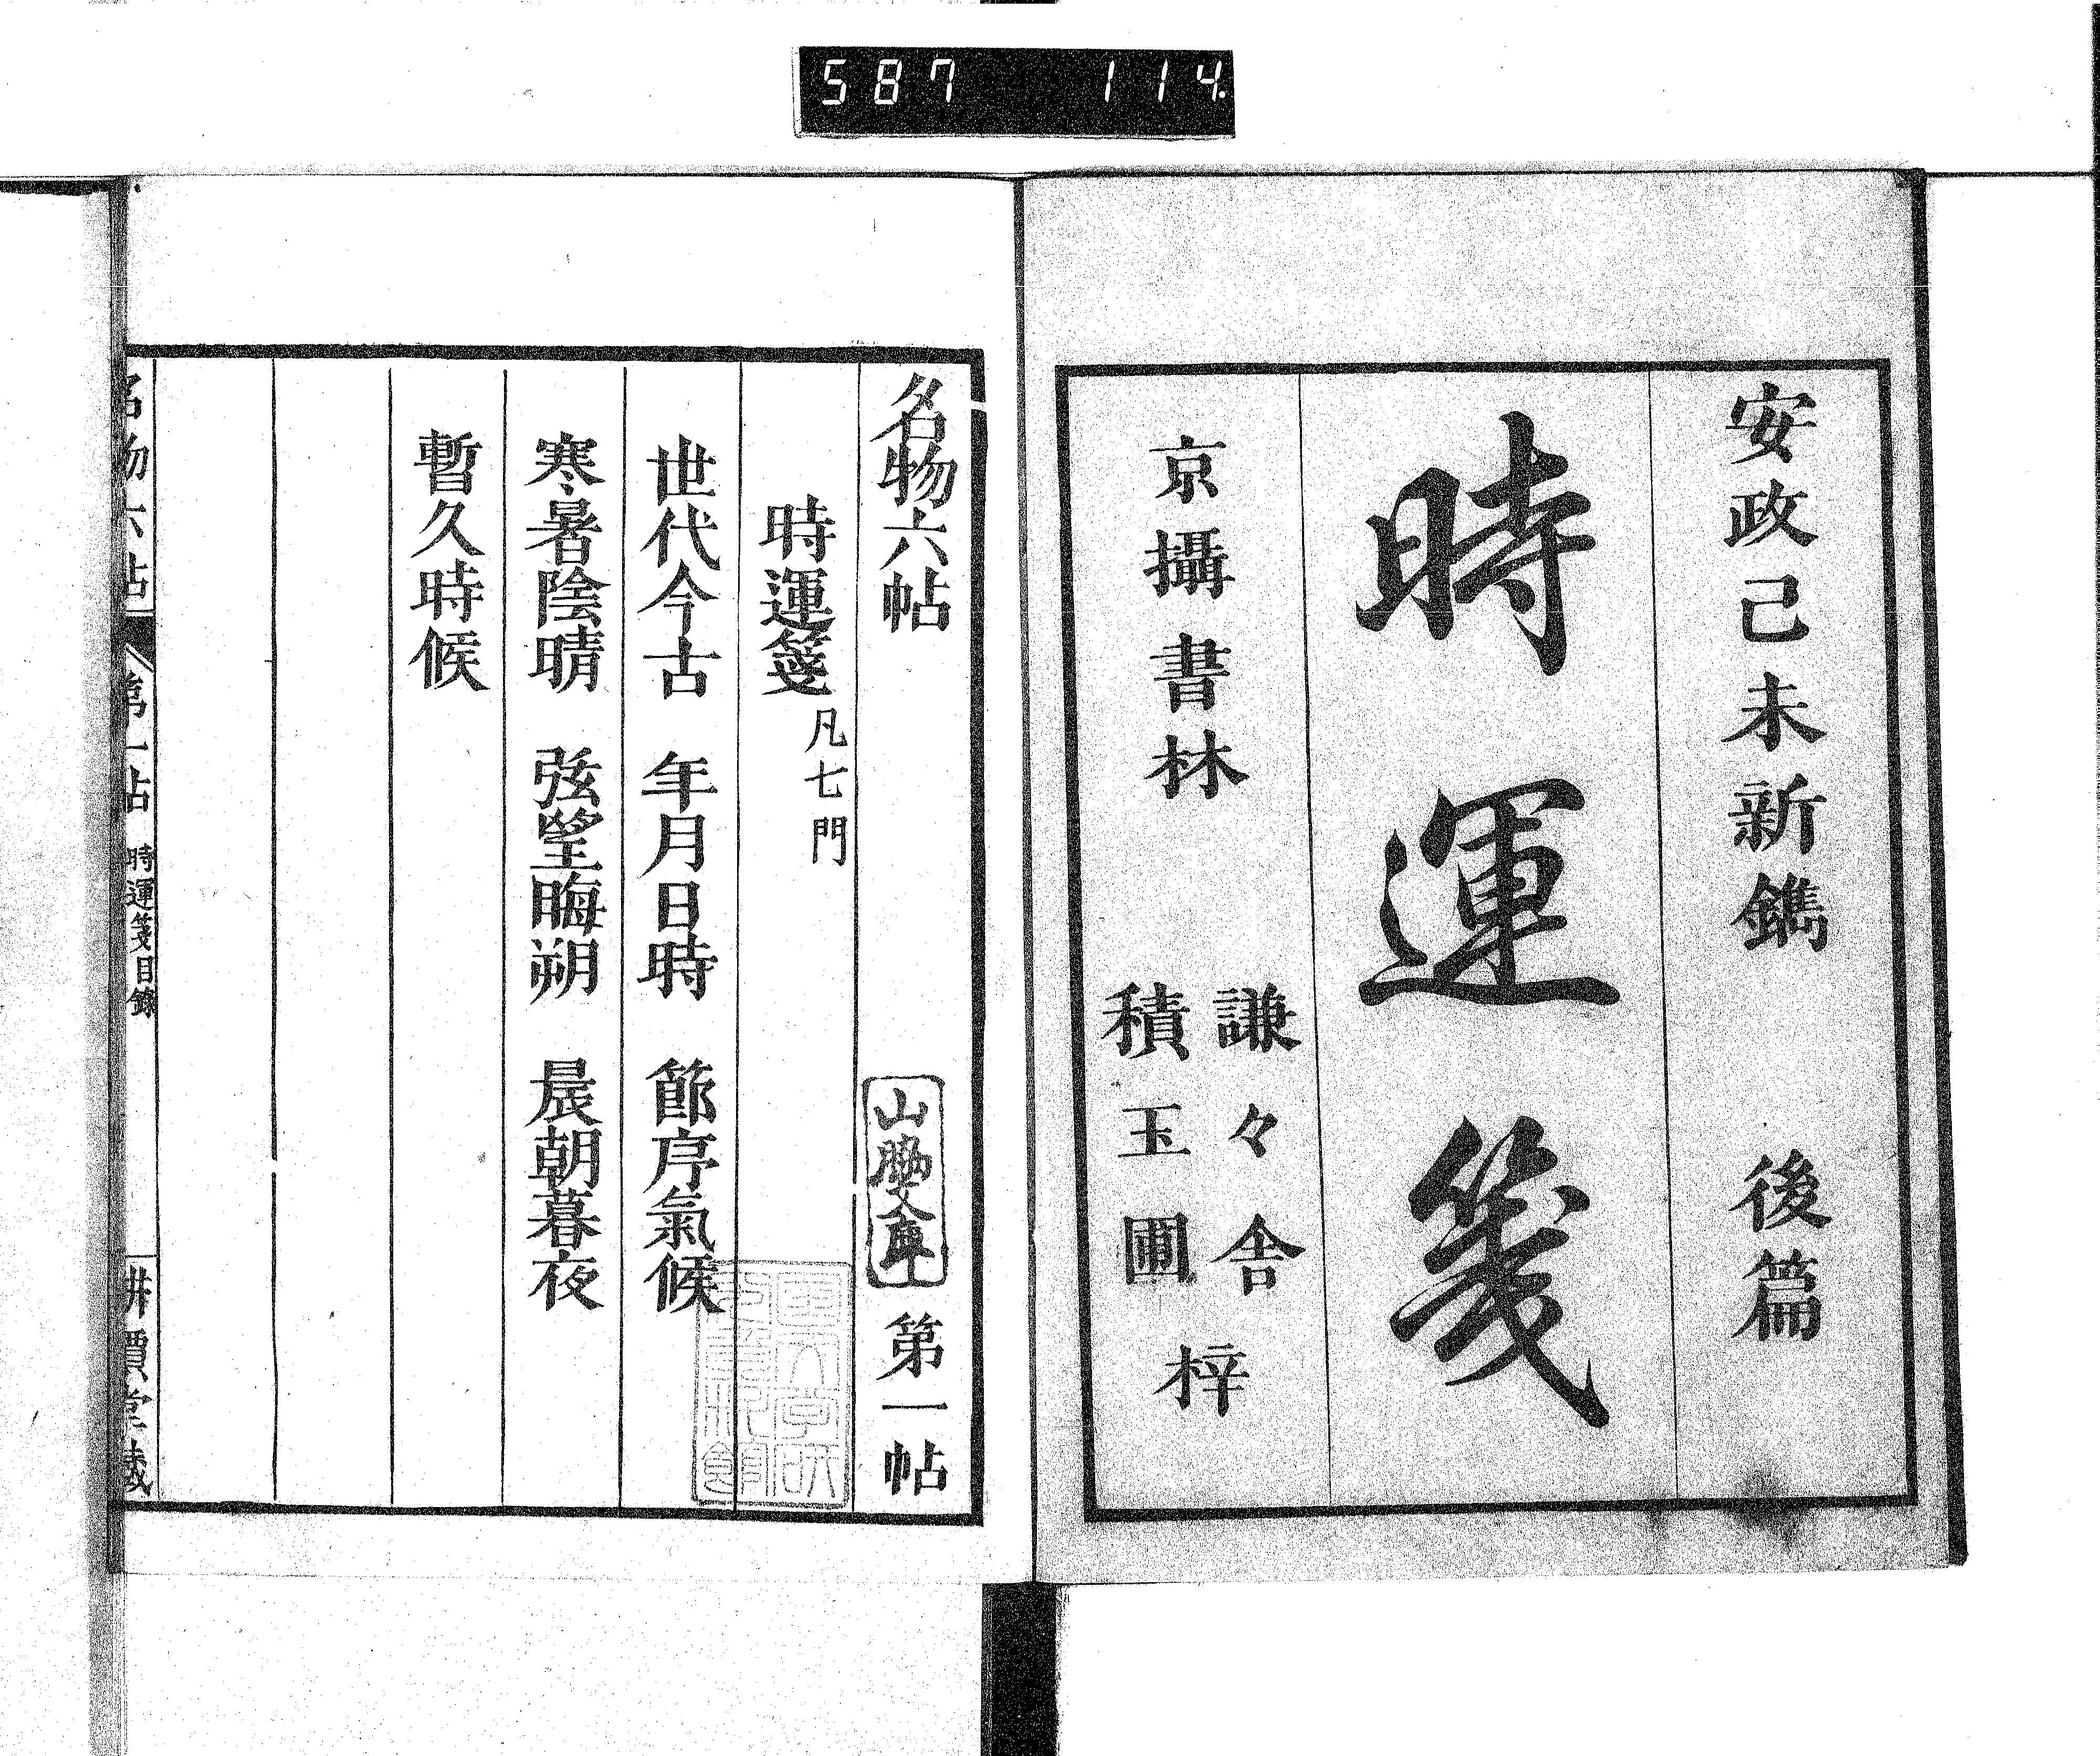 587 114
安政己未新鐫 後篇
時運箋
京攝書林 謙々舍
積玉圃
梓
名物六帖 第一帖
山脇文庫
時運箋 凡七門
世代今古 年月日時 節序氣候
寒暑陰晴 弦望晦朔 晨朝暮夜
暫久時候
名物六帖 第一帖 時運箋目錄